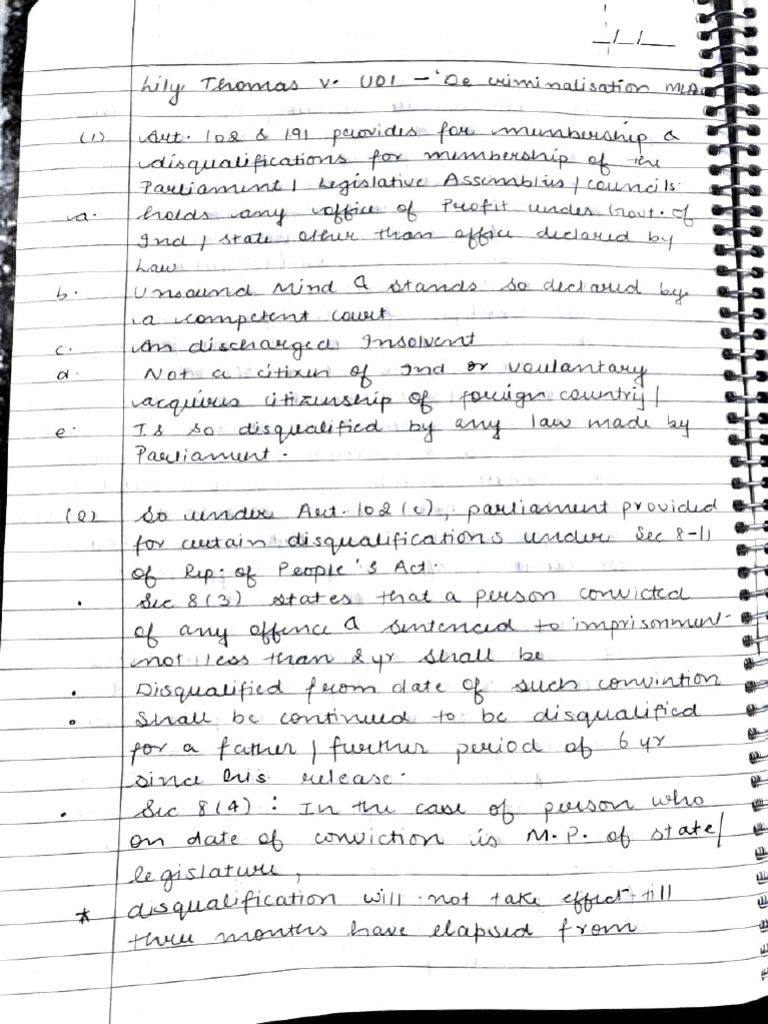 Lily Thomas v. UOI - 'De criminalisation MLA
(1) Art. 102 & 191 provides for membership &
disqualifications for membership of the
Parliament / Legislative Assemblies / councils.
a. holds any office of Profit under Govt. of
Ind / state other than office declared by
Law
b. Unsound Mind & stands so declared by
a competent court
c. An discharged Insolvent
d. Not a citizen of Ind or voulantary
acquires citizenship of foreign country /
e. Is so disqualified by any law made by
Parliament.
(2) So under Art. 102 (c), parliament provided
for certain disqualifications under Sec 8-11
of Rep. of People's Act.
• Sec 8(3) states that a person convicted
of any offence & sentenced to imprisonment
not less than 2 yr shall be
• Disqualified from date of such convintion
• Shall be continued to be disqualified
for a father / further period of 6 yr
since his release.
• Sec 8(4) : In the case of person who
on date of conviction is M.P. of state/
legislature,
* disqualification will not take effect till
three months have elapsed from